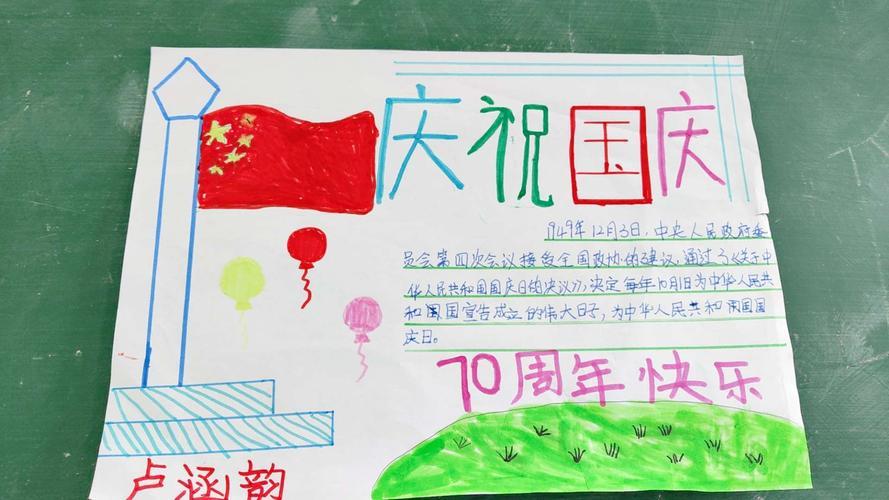 庆祝国庆
1949年12月3日，中央人民政府委
员会第四次会议接受全国政协的建议，通过了《关于中
华人民共和国国庆日的决议》，决定每年10月1日为中华人民共
和国国宣告成立的伟大日子，为中华人民共和国国国
庆日。
70周年快乐
卢涵韵